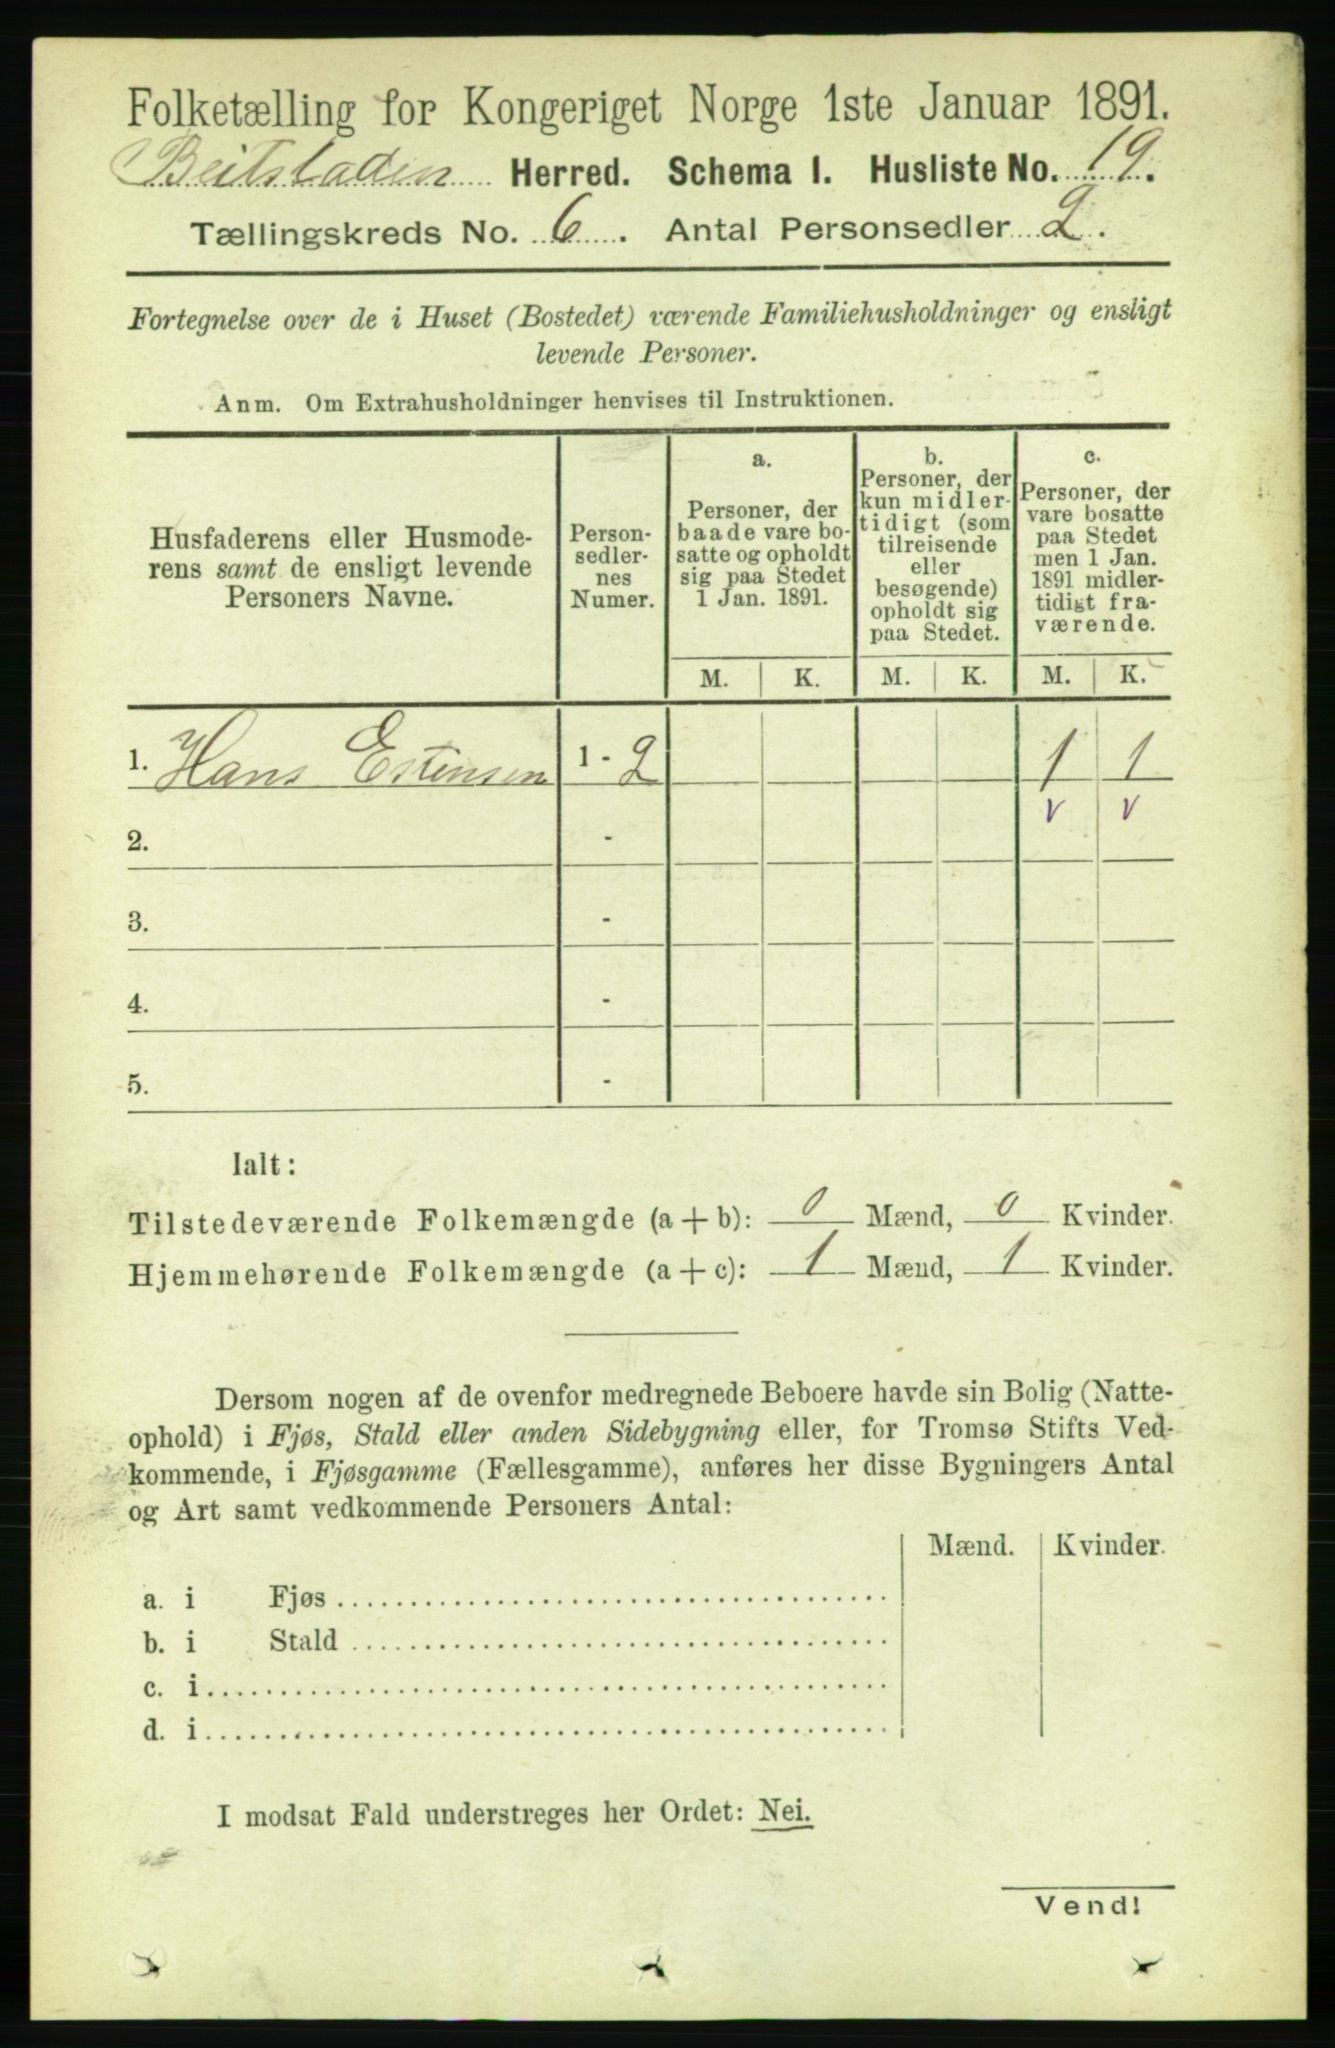 Folketælling for Kongeriget Norge 1ste Januar 1891.
Beitstaden Herred. Schema 1. Husliste No. 19.
Tællingskreds No. 6. Antal Personsedler 2.
Fortegnelse over de i Huset (Bostedet) værende Familiehusholdninger og ensligt
levende Personer.
Anm. Om Extrahusholdninger henvises til Instruktionen.
Husfaderens eller Husmode-
rens samt de ensligt levende
Personers Navne.
Person-
sedler-
nes
Numer.
a.
Personer, der
baade vare bo-
satte og opholdt
sig paa Stedet
1 Jan. 1891.
b.
Personer, der
kun midler-
tidigt (som
tilreisende
eller
besøgende)
opholdt sig
paa Stedet.
c.
Personer, der
vare bosatte
paa Stedet
men 1 Jan.
1891 midler-
tidigt fra-
værende.
M. K. M. K. M. K.
1. Hans Estensen 1 - 2 1 1
v v
2. -
3. -
4. -
5. -
Ialt:
Tilstedeværende Folkemængde (a + b): 0 Mænd, 0 Kvinder.
Hjemmehørende Folkemængde (a + c): 1 Mænd, 1 Kvinder.
Dersom nogen af de ovenfor medregnede Beboere havde sin Bolig (Natte-
ophold) i Fjøs, Stald eller anden Sidebygning eller, for Tromsø Stifts Ved-
kommende, i Fjøsgamme (Fællesgamme), anføres her disse Bygningers Antal
og Art samt vedkommende Personers Antal:
Mænd. Kvinder.
a. i Fjøs
b. i Stald
c. i
d. i
I modsat Fald understreges her Ordet: Nei.
Vend!